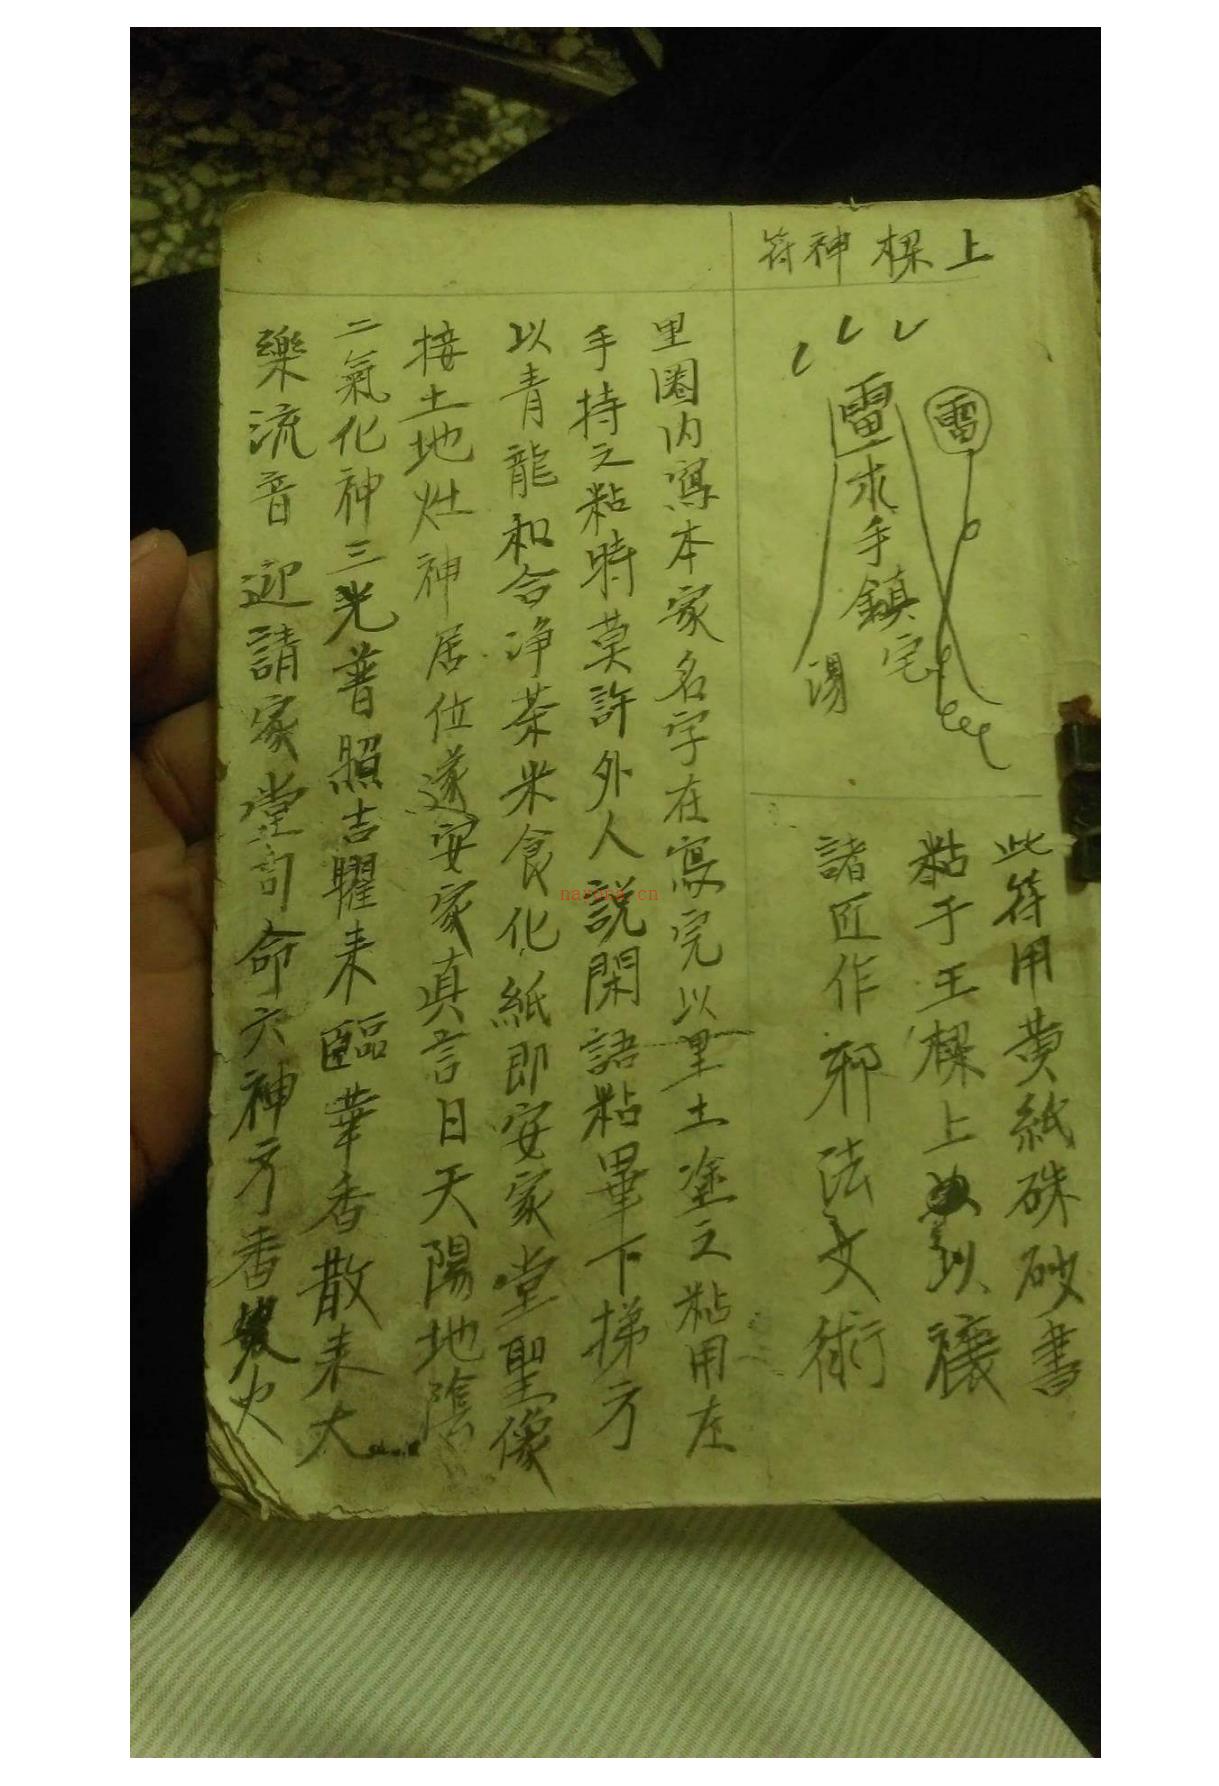 上樑神符
雷
雷求手鎮宅
湯
此符用黄紙硃砂書
粘于王樑上以禳
諸匠作邪法文術
里圈内寫本家名字在寫完以里土塗之粘用左
手持之粘時莫許外人説閑語粘畢下梯方
以青龍和合净茶米食化紙即安家堂聖像
接土地灶神居位遂安家真言日天陽地陰
二氣化神三光普照吉曜来臨華香散来大
樂流音迎請家堂司命六神方香火
nayona.cn